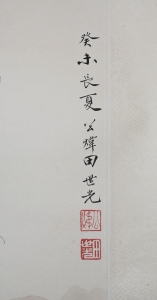 癸未長夏公煒田世光